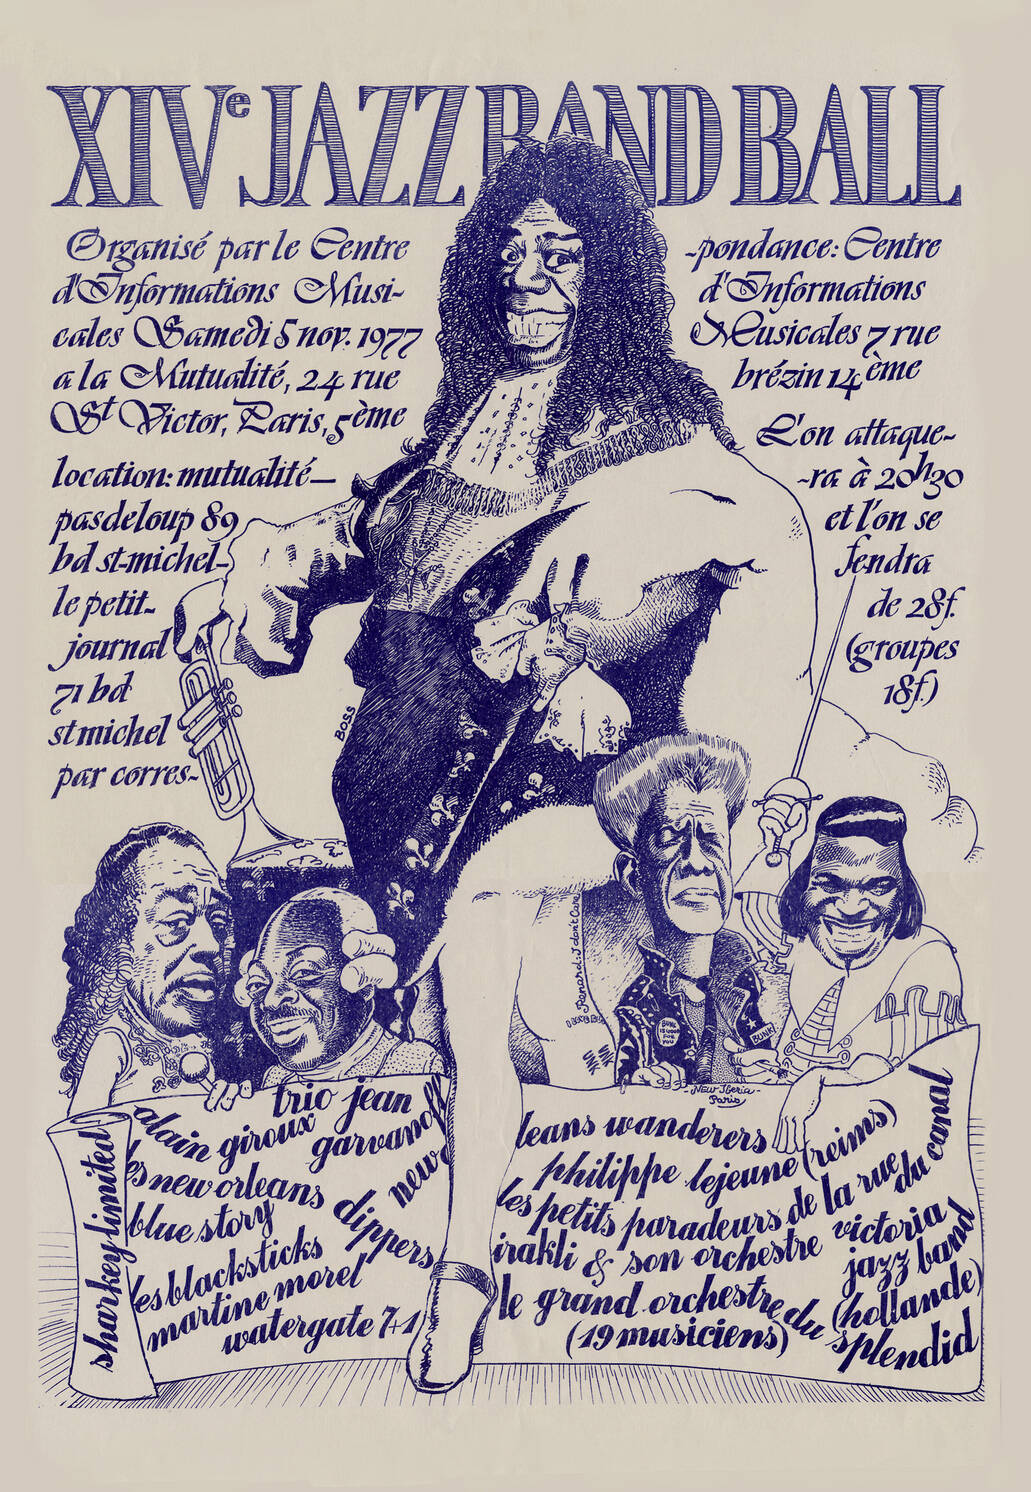 XIVe JAZZ BAND BALL
Organisé par le Centre
d'Informations Musi-
cales Samedi 5 nov. 1977
a la Mutualité, 24 rue
St Victor, Paris, 5ème
location: mutualité—
pasdeloup 89
bd st-michel-
le petit-
journal
71 bd
st michel
par corres-
-pondance: Centre
d'Informations
Musicales 7 rue
brézin 14ème
L'on attaque-
-ra à 20h30
et l'on se
fendra
de 28f.
(groupes
18f.)
BOSS
Renardi I don't Care
BUNK
IS GOOD
FOR
YOU
BUNK!
-New Iberia-
Paris
sharkey limited
alain giroux
trio jean
garvanoff
les new orleans
blue story
dippers
new
les blacksticks
martine morel
watergate 7+1
leans wanderers
philippe lejeune (reims)
les petits paradeurs de la rue
du canal
irakli & son orchestre
victoria
jazz band
(hollande)
le grand orchestre du
splendid
(19 musiciens)